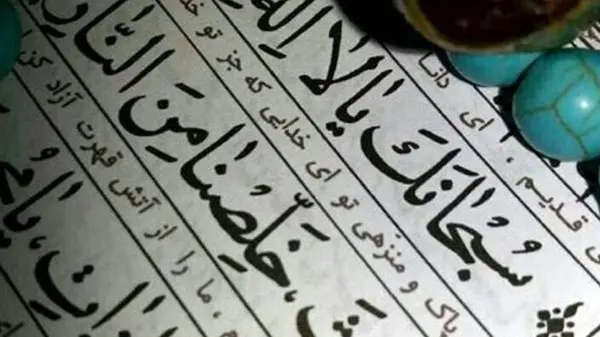 قدیم ، ای دانا
سُبْحانَكَ يا لا اِلهَ
پاک و منزهی تو ای خدایی که جز تو
خَلِّصْنا مِنَ النَّارِ
، ما را از آتش قهرت آزاد کن
اتِ، يا
ای